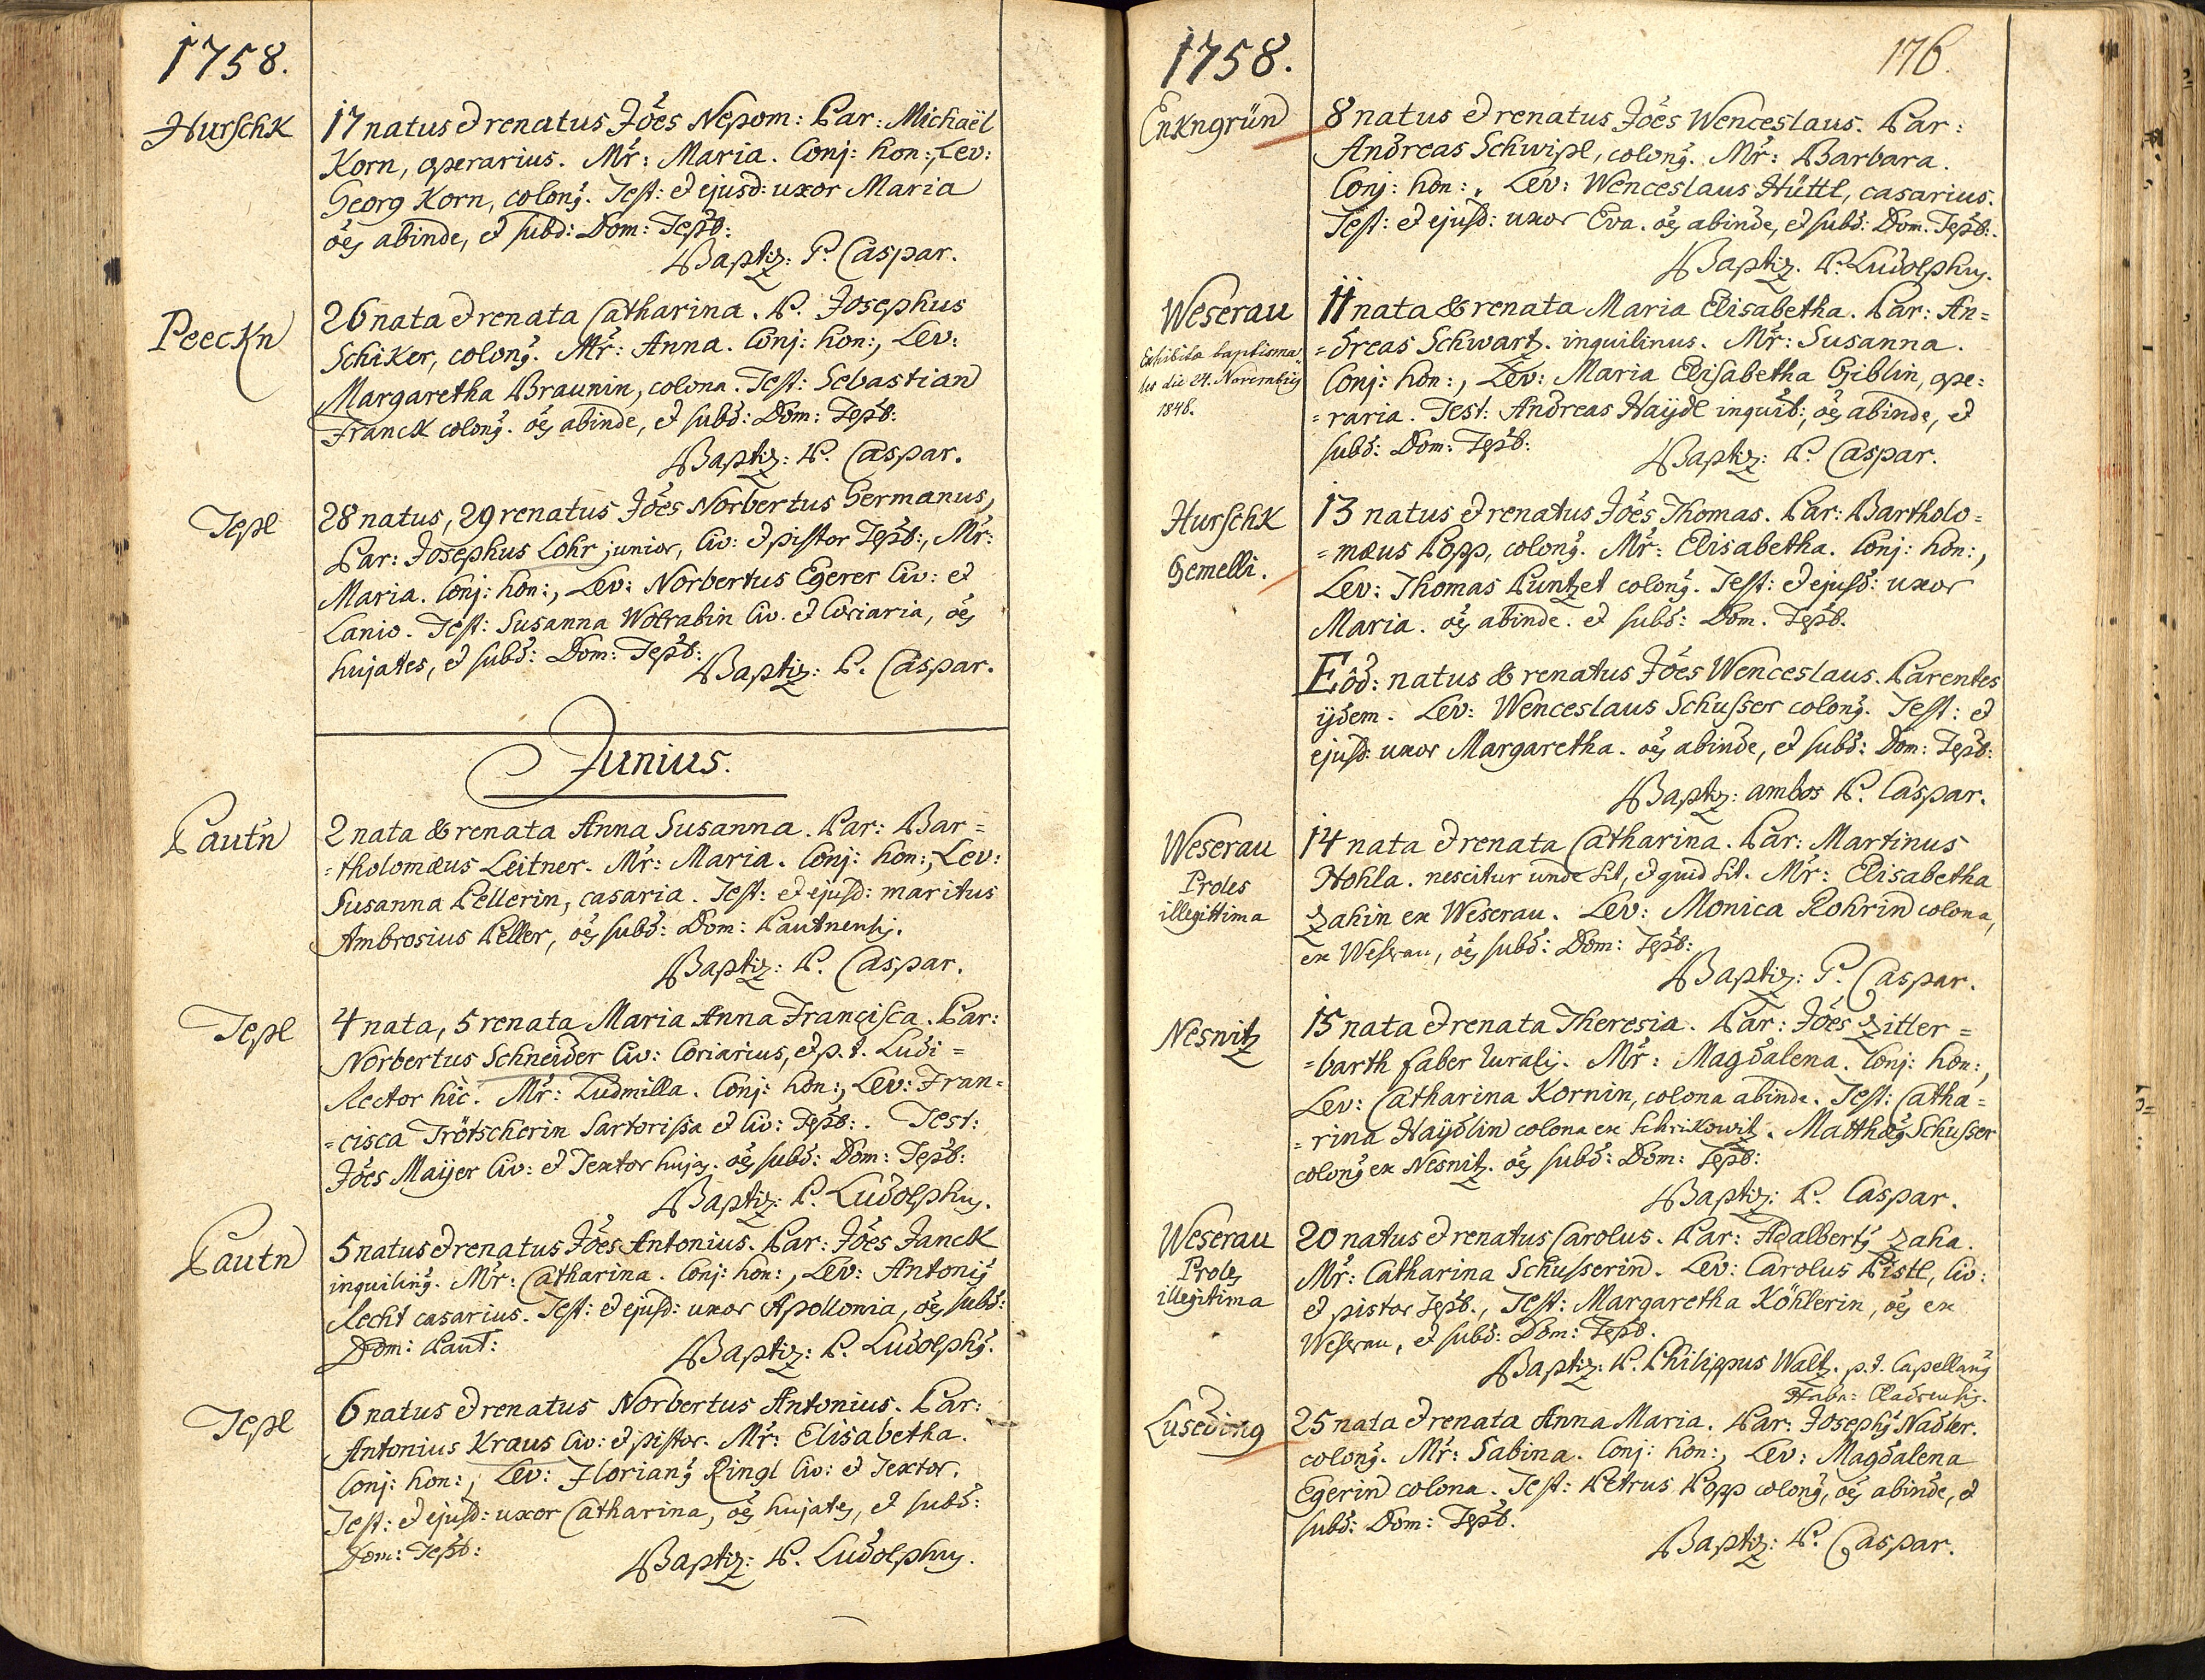 1758.
Hurschk
17 natus et renatus Jões Nepom: Par: Michaël
Korn, operarius. Mr̃: Maria. Conj: hon:, Lev:
Georg Korn, colong. Test: et ejusd: uxor Maria
oẽs abinde, et subd: Dom: Tepl̃:
Baptiz: P. Caspar.
Peeckn
26 nata et renata Catharina. P. Josephus
Schiker, colong. Mr̃: Anna. Conj: hon:, Lev:
Margaretha Braunin, colona. Test: Sebastian
Franck colong. oẽs abinde, et subd: Dom: Tepl̃:
Baptiz: P. Caspar.
Tepl
28 natus, 29 renatus Jões Norbertus Germanus,
Par: Josephus Lohr junior, Civ: et pistor Tepl̃:, Mr̃:
Maria. Conj: hon:, Lev: Norbertus Egerer Civ: et
Lanio. Test: Susanna Wolrabin Civ. et Coriaria, oẽs
hujates, et subd: Dom: Tepl̃:
Baptiz: P. Caspar.
Junius.
Pautn
2 nata & renata Anna Susanna. Par: Bar=
=tholomæus Leitner. Mr̃: Maria. Conj: hon:, Lev:
Susanna Pellerin, casaria. Test: et ejusd: maritus
Ambrosius Peller, oẽs subd: Dom: Pautnensis.
Baptiz: P. Caspar.
Tepl
4 nata, 5 renata Maria Anna Francisca. Par:
Norbertus Schneider Civ: Coriarius, et p. t. Ludi=
Rector hic. Mr̃: Ludmilla. Conj: hon:, Lev: Fran=
=cisca Trötscherin Sartorissa et Civ: Tepl̃:. Test:
Jões Maÿer Civ: et Textor hujas. oẽs subd: Dom: Tepl̃:
Baptiz: P. Ludolphus.
Pautn
5 natus et renatus Jões Antonius. Par: Jões Janck
inquiling. Mr̃: Catharina. Conj: hon:, Lev: Antonius
Recht casarius. Test: et ejusd: uxor Apollonia, oẽs subd:
Dom: Paut:
Baptiz: P. Ludolphus.
Tepl
6 natus et renatus Norbertus Antonius. Par:
Antonius Kraus Civ: et pistor. Mr̃: Elisabetha.
Conj: hon:, Lev: Florianus Ringl Civ: et Textor.
Test: et ejusd: uxor Catharina, oẽs hujates, et subd:
Dom: Tepl̃:
Baptiz: P. Ludolphus.
1758.
176.
Enkngrün
8 natus et renatus Jões Wenceslaus. Par:
Andreas Schwipl, colong. Mr̃: Barbara.
Conj: hon:, Lev: Wenceslaus Hüttl, casarius.
Test: et ejusd: uxor Eva. oẽs abinde, et subd: Dom: Tepl̃:.
Baptiz. P. Ludolphus.
Weserau
Exhibita baptisma=
lis die 24. Novembris
1848.
11 nata & renata Maria Elisabetha. Par: An=
=dreas Schwartz. inquilinus. Mr̃: Susanna.
Conj: hon:, Lev: Maria Elisabetha Giblin, ope=
=raria. Test: Andreas Haÿdl inquil:, oẽs abinde, et
subd: Dom: Tepl̃:
Baptiz: P. Caspar.
Hurschk
Gemelli.
13 natus et renatus Jões Thomas. Par: Bartholo=
=mæus Popp, colong. Mr̃: Elisabetha. Conj: hon:,
Lev: Thomas Puntzet colong. Test: et ejusd: uxor
Maria. oẽs abinde. et subd: Dom. Tepl̃.
Eod: natus & renatus Jões Wenceslaus. Parentes
ijdem. Lev: Wenceslaus Schusser colong. Test: et
ejusd: uxor Margaretha. oẽs abinde, et subd: Dom: Tepl̃:
Baptiz: ambos P. Caspar.
Weserau
Proles
illegittima
14 nata et renata Catharina. Par: Martinus
Hohla. nescitur unde sit, et quid sit. Mr̃: Elisabetha
Zahin ex Weserau. Lev: Monica Rohrin colona,
ex Weserau, oẽs subd: Dom: Tepl̃:
Baptiz: P. Caspar.
Nesnitz
15 nata et renata Theresia. Par: Jões Zitter=
=barth faber muralis. Mr̃: Magdalena. Conj: hon:,
Lev: Catharina Kornin, colona abinde. Test: Catha=
=rina Haÿdlin colona ex Schrikowitz. Matthæus Schusser
colong ex Nesnitz. oẽs subd: Dom: Tepl̃:
Baptiz: P. Caspar.
Weserau
Proles
illegitima
20 natus et renatus Carolus. Par: Adalbertus Zaha.
Mr̃: Catharina Schusserin. Lev: Carolus Pistl, Civ:
et pistor Tepl̃., Test: Margaretha Köhlerin, oẽs ex
Weserau, et subd: Dom: Tepl̃.
Baptiz: P. Philippus Waltz. p. t. Capellanus
Habr: Cladrensis.
Luseding
25 nata et renata Anna Maria. Par: Josephus Nadler.
colong. Mr̃: Sabina. Conj: hon:, Lev: Magdalena
Egerin colona. Test: Petrus Popp colong, oẽs abinde, et
subd: Dom: Tepl̃.
Baptiz: P. Caspar.